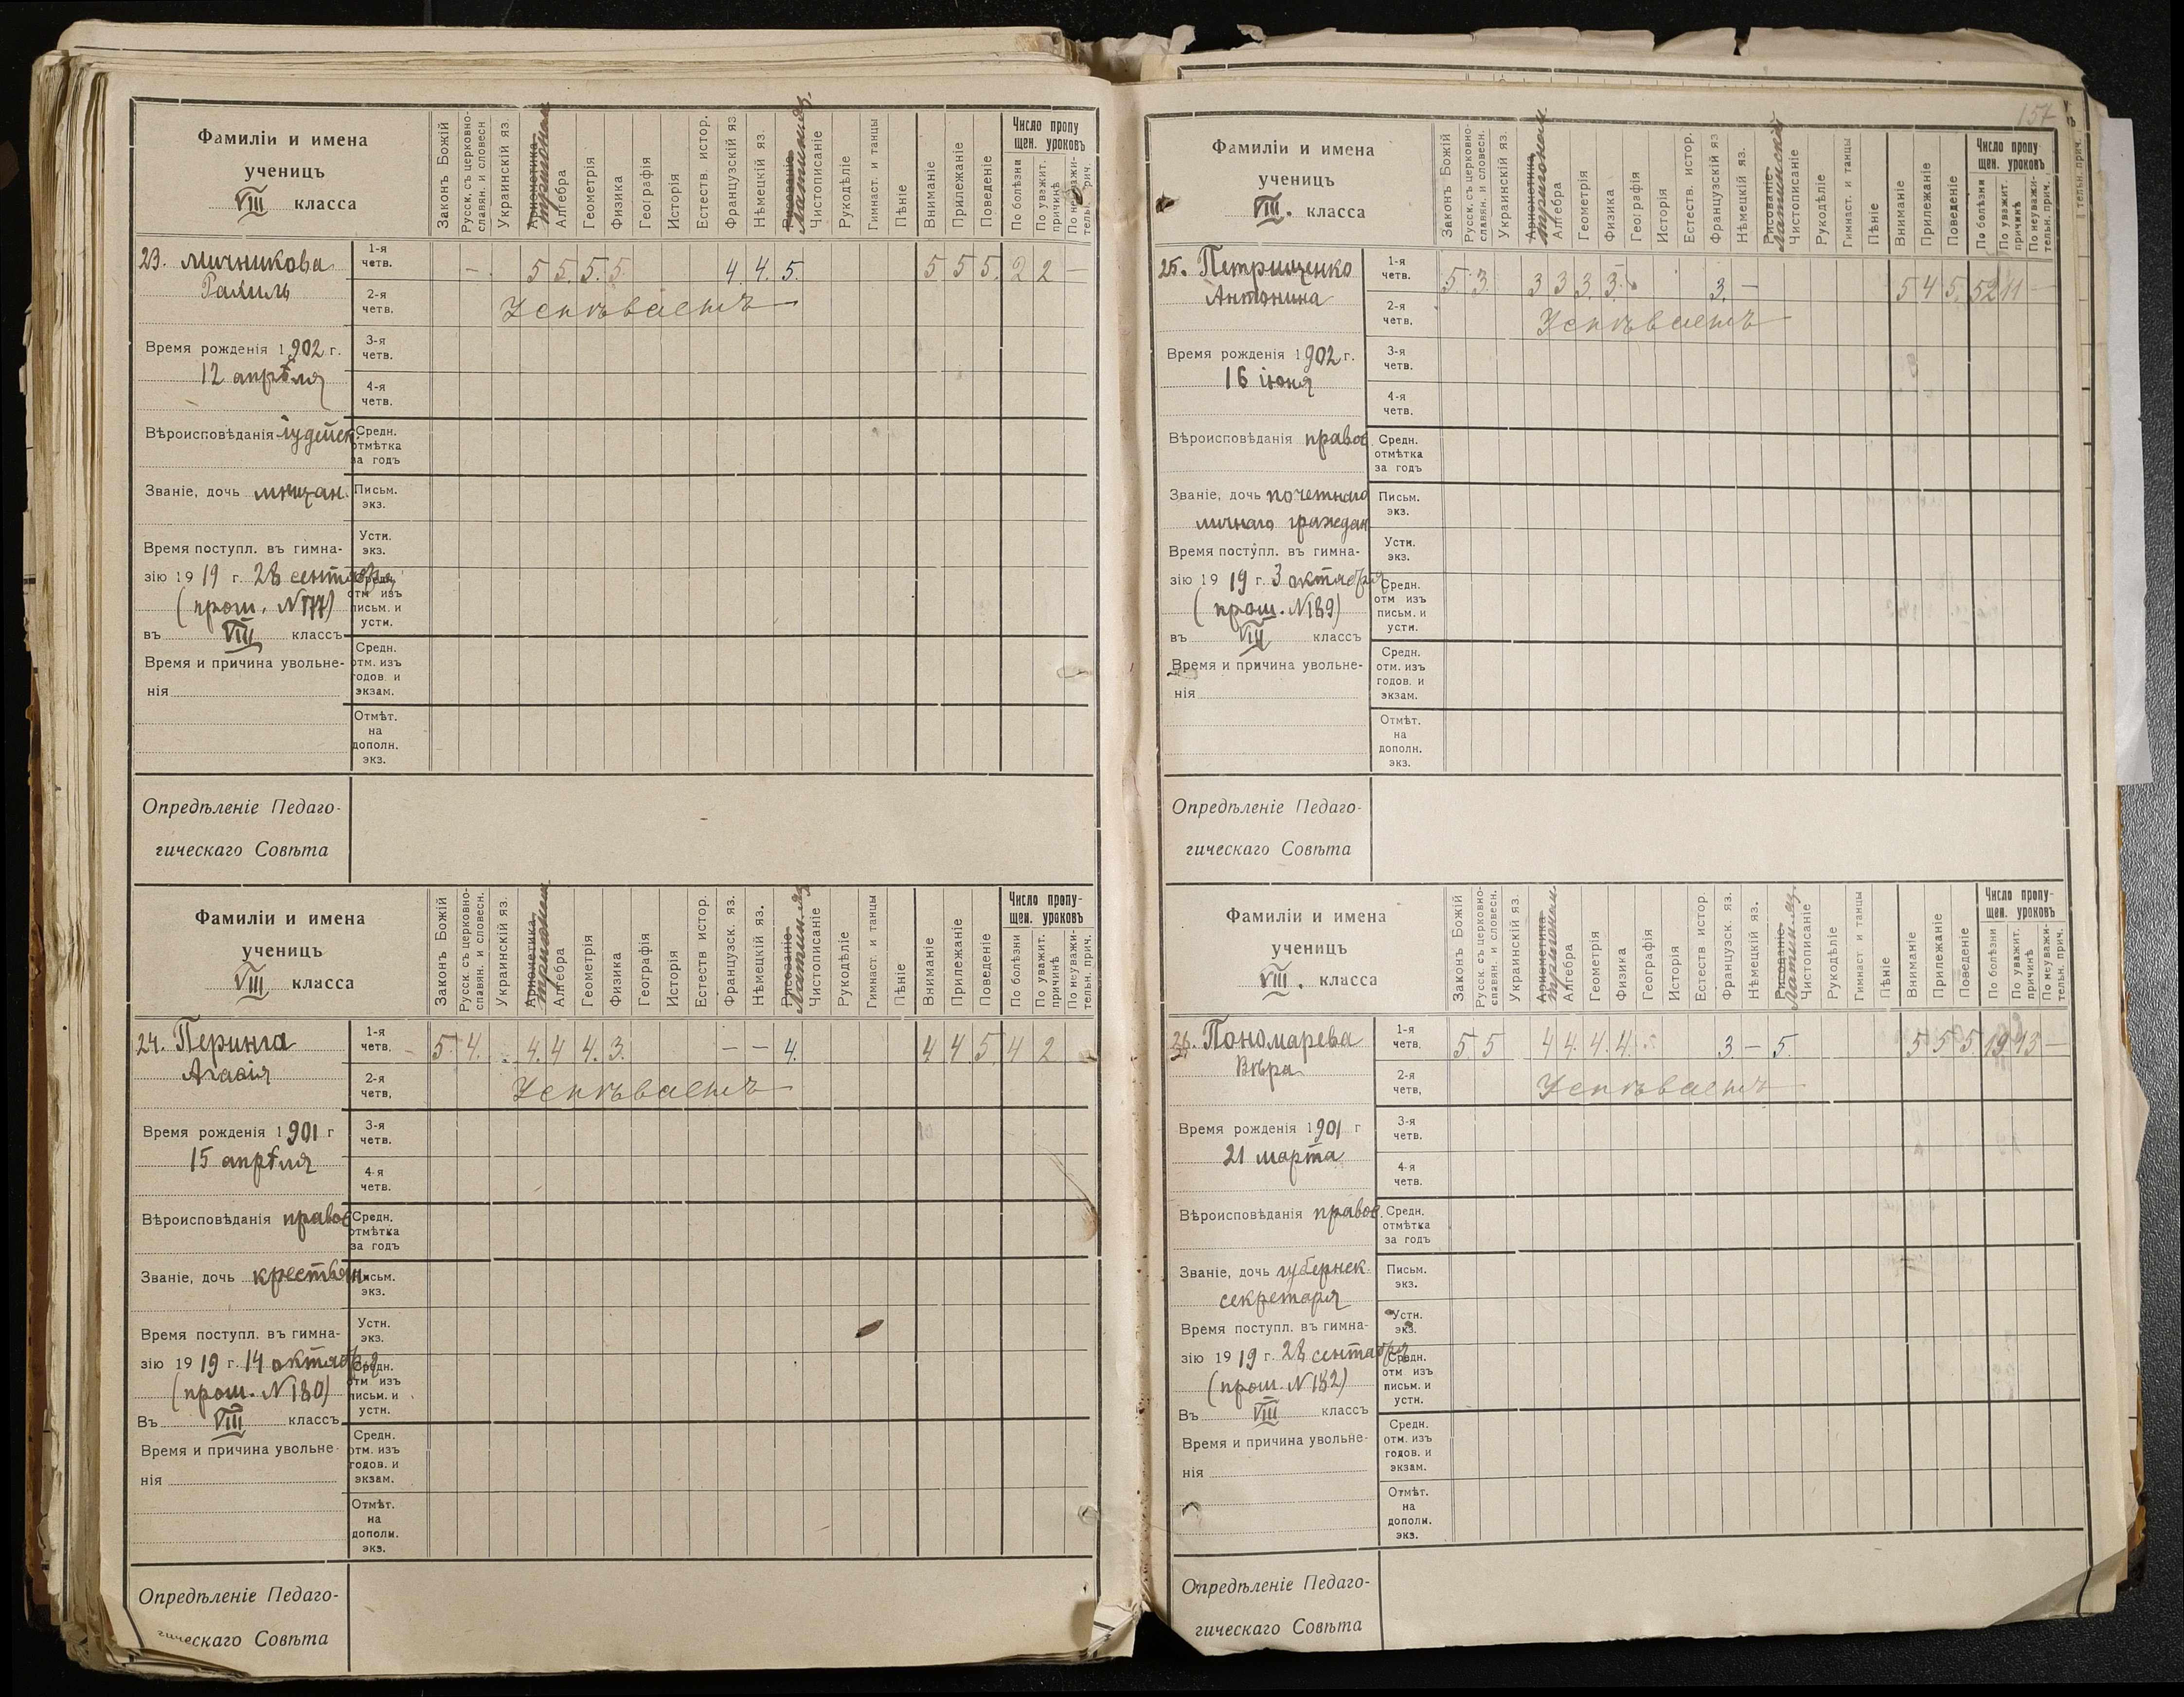 157
Фамиліи и имена
ученицъ
VIII класса
Законъ Божій
Русск. съ церковно-
славян. и словесн
Украинскій яз.
Ариѳметика
тригонометр
Алгебра
Геометрія
Физика
Географія
Исторія
Естеств. истор.
Французскій яз
Нѣмецкій яз.
Рисованіе
Латин. яз.
Чистописаніе
Рукодѣліе
Гимнаст. и танцы
Пѣніе
Вниманіе
Прилежаніе
Поведеніе
Число пропу
щен. уроковъ
По болѣзни
По уважит.
причинѣ
По неуважи-
тельн. прич.
23. Мичникова
Рахиль
1-я
четв.
– 5 5. 5. 5. 4. 4. 5. 5 5 5. 2 2 –
2-я
четв.
Успѣваетъ
Время рожденія 1902 г.
12 апрѣля
3-я
четв.
4-я
четв.
Вѣроисповѣданія іудейск.
Средн.
отмѣтка
за годъ
Званіе, дочь мѣщан.
Письм.
экз.
Время поступл. въ гимна-
зію 1919 г. 28 сентября
(прош. N 177)
въ VIII классъ
Устн.
экз.
Средн.
отм изъ
письм. и
устн.
Время и причина увольне-
нія
Средн.
отм. изъ
годов. и
экзам.
Отмѣт.
на
дополн.
экз.
Опредѣленіе Педаго-
гическаго Совѣта
Фамиліи и имена
ученицъ
VIII класса
Законъ Божій
Русск. съ церковно-
славян. и словесн.
Украинскій яз.
Ариѳметика
тригонометр
Алгебра
Геометрія
Физика
Географія
Исторія
Естеств истор.
Французск. яз.
Нѣмецкій яз.
Рисованіе
Латин. яз
Чистописаніе
Рукодѣліе
Гимнаст. и танцы
Пѣніе
Вниманіе
Прилежаніе
Поведеніе
Число пропу-
щен. уроковъ
По болѣзни
По уважит.
причинѣ
По неуважи-
тельн. прич.
24. Перинга
Агафія
1-я
четв.
5. 4. 4. 4 4. 3. – – 4. 4 4 5. 4 2
2-я
четв.
Успѣваетъ
Время рожденія 1901 г
15 апрѣля
3-я
четв.
4-я
четв.
Вѣроисповѣданія правос
Средн.
отмѣтка
за годъ
Званіе, дочь крестьян.
Письм.
экз.
Время поступл. въ гимна-
зію 1919 г. 14 октября
(прош. N 180)
Въ VIII классъ
Устн.
экз.
Средн.
отм изъ
письм. и
устн.
Время и причина увольне-
нія
Средн.
отм. изъ
годов. и
экзам.
Отмѣт.
на
дополн.
экз.
Опредѣленіе Педаго-
гическаго Совѣта
Фамиліи и имена
ученицъ
VIII. класса
Законъ Божій
Русск. съ церковно-
славян. и словесн.
Украинскій яз.
Ариѳметика
тригонометр
Алгебра
Геометрія
Физика
Географія
Исторія
Естеств. истор.
Французскій яз
Нѣмецкій яз.
Рисованіе
латинскій
Чистописаніе
Рукодѣліе
Гимнаст. и танцы
Пѣніе
Вниманіе
Прилежаніе
Поведеніе
Число пропу-
щен. уроковъ
По болѣзни
По уважит.
причинѣ
По неуважи-
тельн. прич.
25. Петрищенко
Антонина
1-я
четв.
5. 3. 3 3 3. 3. 3. – 5 4 5. 52 11 –
2-я
четв.
Успѣваетъ
Время рожденія 1902 г.
16 іюня
3-я
четв.
4-я
четв.
Вѣроисповѣданія правос
Средн.
отмѣтка
за годъ
Званіе, дочь почетнаго
личнаго граждан
Письм.
экз.
Время поступл. въ гимна-
зію 1919 г. 3 октября
(прош. N 189)
въ VIII классъ
Устн.
экз.
Средн.
отм изъ
письм. и
устн.
Время и причина увольне-
нія
Средн.
отм. изъ
годов. и
экзам.
Отмѣт.
на
дополн.
экз.
Опредѣленіе Педаго-
гическаго Совѣта
Фамиліи и имена
ученицъ
VIII. класса
Законъ Божій
Русск. съ церковно-
славян. и словесн.
Украинскій яз.
Ариѳметика
тригоном.
Алгебра
Геометрія
Физика
Географія
Исторія
Естеств истор.
Французск. яз.
Нѣмецкій яз.
Рисованіе
Латин. яз.
Чистописаніе
Рукодѣліе
Гимнаст и танцы
Пѣніе
Вниманіе
Прилежаніе
Поведеніе
Число пропу-
щен. уроковъ
По болѣзни
По уважит.
причинѣ
По неуважи-
тельн. прич.
26. Пономарева
Вѣра
1-я
четв.
5 5 4 4. 4. 4. 3 – 5. 5 5 5 19 13 –
2-я
четв.
Успѣваетъ
Время рожденія 1901 г
21 марта
3-я
четв.
4-я
четв.
Вѣроисповѣданія правос.
Средн.
отмѣтка
за годъ
Званіе, дочь губернск.
секретаря
Письм.
экз.
Время поступл. въ гимна-
зію 1919 г. 28 сентября
(прош. N 182)
Въ VIII классъ
Устн.
экз.
Средн.
отм изъ
письм. и
устн.
Время и причина увольне-
нія
Средн.
отм. изъ
годов. и
экзам.
Отмѣт.
на
дополн.
экз.
Опредѣленіе Педаго-
гическаго Совѣта